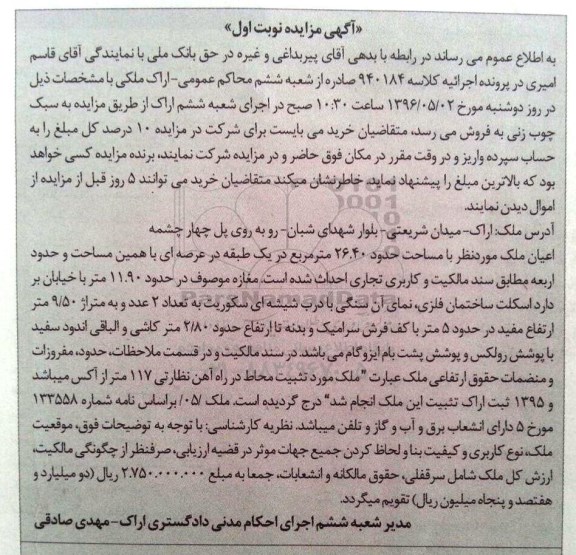 «آگهی مزایده نوبت اول»
به اطلاع عموم می رساند در رابطه با بدهی آقای پیربداغی و غیره در حق بانک ملی با نمایندگی آقای قاسم
امیری در پرونده اجرائیه کلاسه ۹۴۰۱۸۴ صادره از شعبه ششم محاکم عمومی-اراک ملکی با مشخصات ذیل
در روز دوشنبه مورخ ۱۳۹۶/۰۵/۰۲ ساعت ۱۰:۳۰ صبح در اجرای شعبه ششم اراک از طریق مزایده به سبک
چوب زنی به فروش می رسد، متقاضیان خرید می بایست برای شرکت در مزایده ۱۰ درصد کل مبلغ را به
حساب سپرده واریز و در وقت مقرر در مکان فوق حاضر و در مزایده شرکت نمایند، برنده مزایده کسی خواهد
بود که بالاترین مبلغ را پیشنهاد نماید. خاطرنشان میکند متقاضیان خرید می توانند ۵ روز قبل از مزایده از
اموال دیدن نمایند.
آدرس ملک: اراک-میدان شریعتی-بلوار شهدای شبان- رو به روی پل چهار چشمه
اعیان ملک موردنظر با مساحت حدود ۲۶.۴۰ مترمربع در یک طبقه در عرصه ای با همین مساحت و حدود
اربعه مطابق سند مالکیت و کاربری تجاری احداث شده است. مغازه موصوف در حدود ۱۱.۹۰ متر با خیابان بر
دارد اسکلت ساختمان فلزی، نمای آن سنگی با درب شیشه ای سکوریت به تعداد ۲ عدد و به متراژ ۹/۵۰ متر
ارتفاع مفید در حدود ۵ متر با کف فرش سرامیک و بدنه تا ارتفاع حدود ۲/۸۰ متر کاشی و الباقی اندود سفید
با پوشش رولکس و پوشش پشت بام ایزوگام می باشد. در سند مالکیت و در قسمت ملاحظات، حدود، مفروزات
و منضمات حقوق ارتفاعی ملک عبارت "ملک مورد تثبیت محاط در راه آهن نظارتی ۱۱۷ متر از آکس میباشد
و ۱۳۹۵ ثبت اراک تثبیت این ملک انجام شد" درج گردیده است. ملک /۰۵/ براساس نامه شماره ۱۳۳۵۵۸
مورخ ۵ دارای انشعاب برق و آب و گاز و تلفن میباشد. نظریه کارشناسی: با توجه به توضیحات فوق، موقعیت
ملک، نوع کاربری و کیفیت بنا و لحاظ کردن جمیع جهات موثر در قضیه ارزیابی، صرفنظر از چگونگی مالکیت،
ارزش کل ملک شامل سرقفلی، حقوق مالکانه و انشعابات، جمعا به مبلغ ۲.۷۵۰.۰۰۰.۰۰۰ ریال (دو میلیارد و
هفتصد و پنجاه میلیون ریال) تقویم میگردد.
مدیر شعبه ششم اجرای احکام مدنی دادگستری اراک-مهدی صادقی